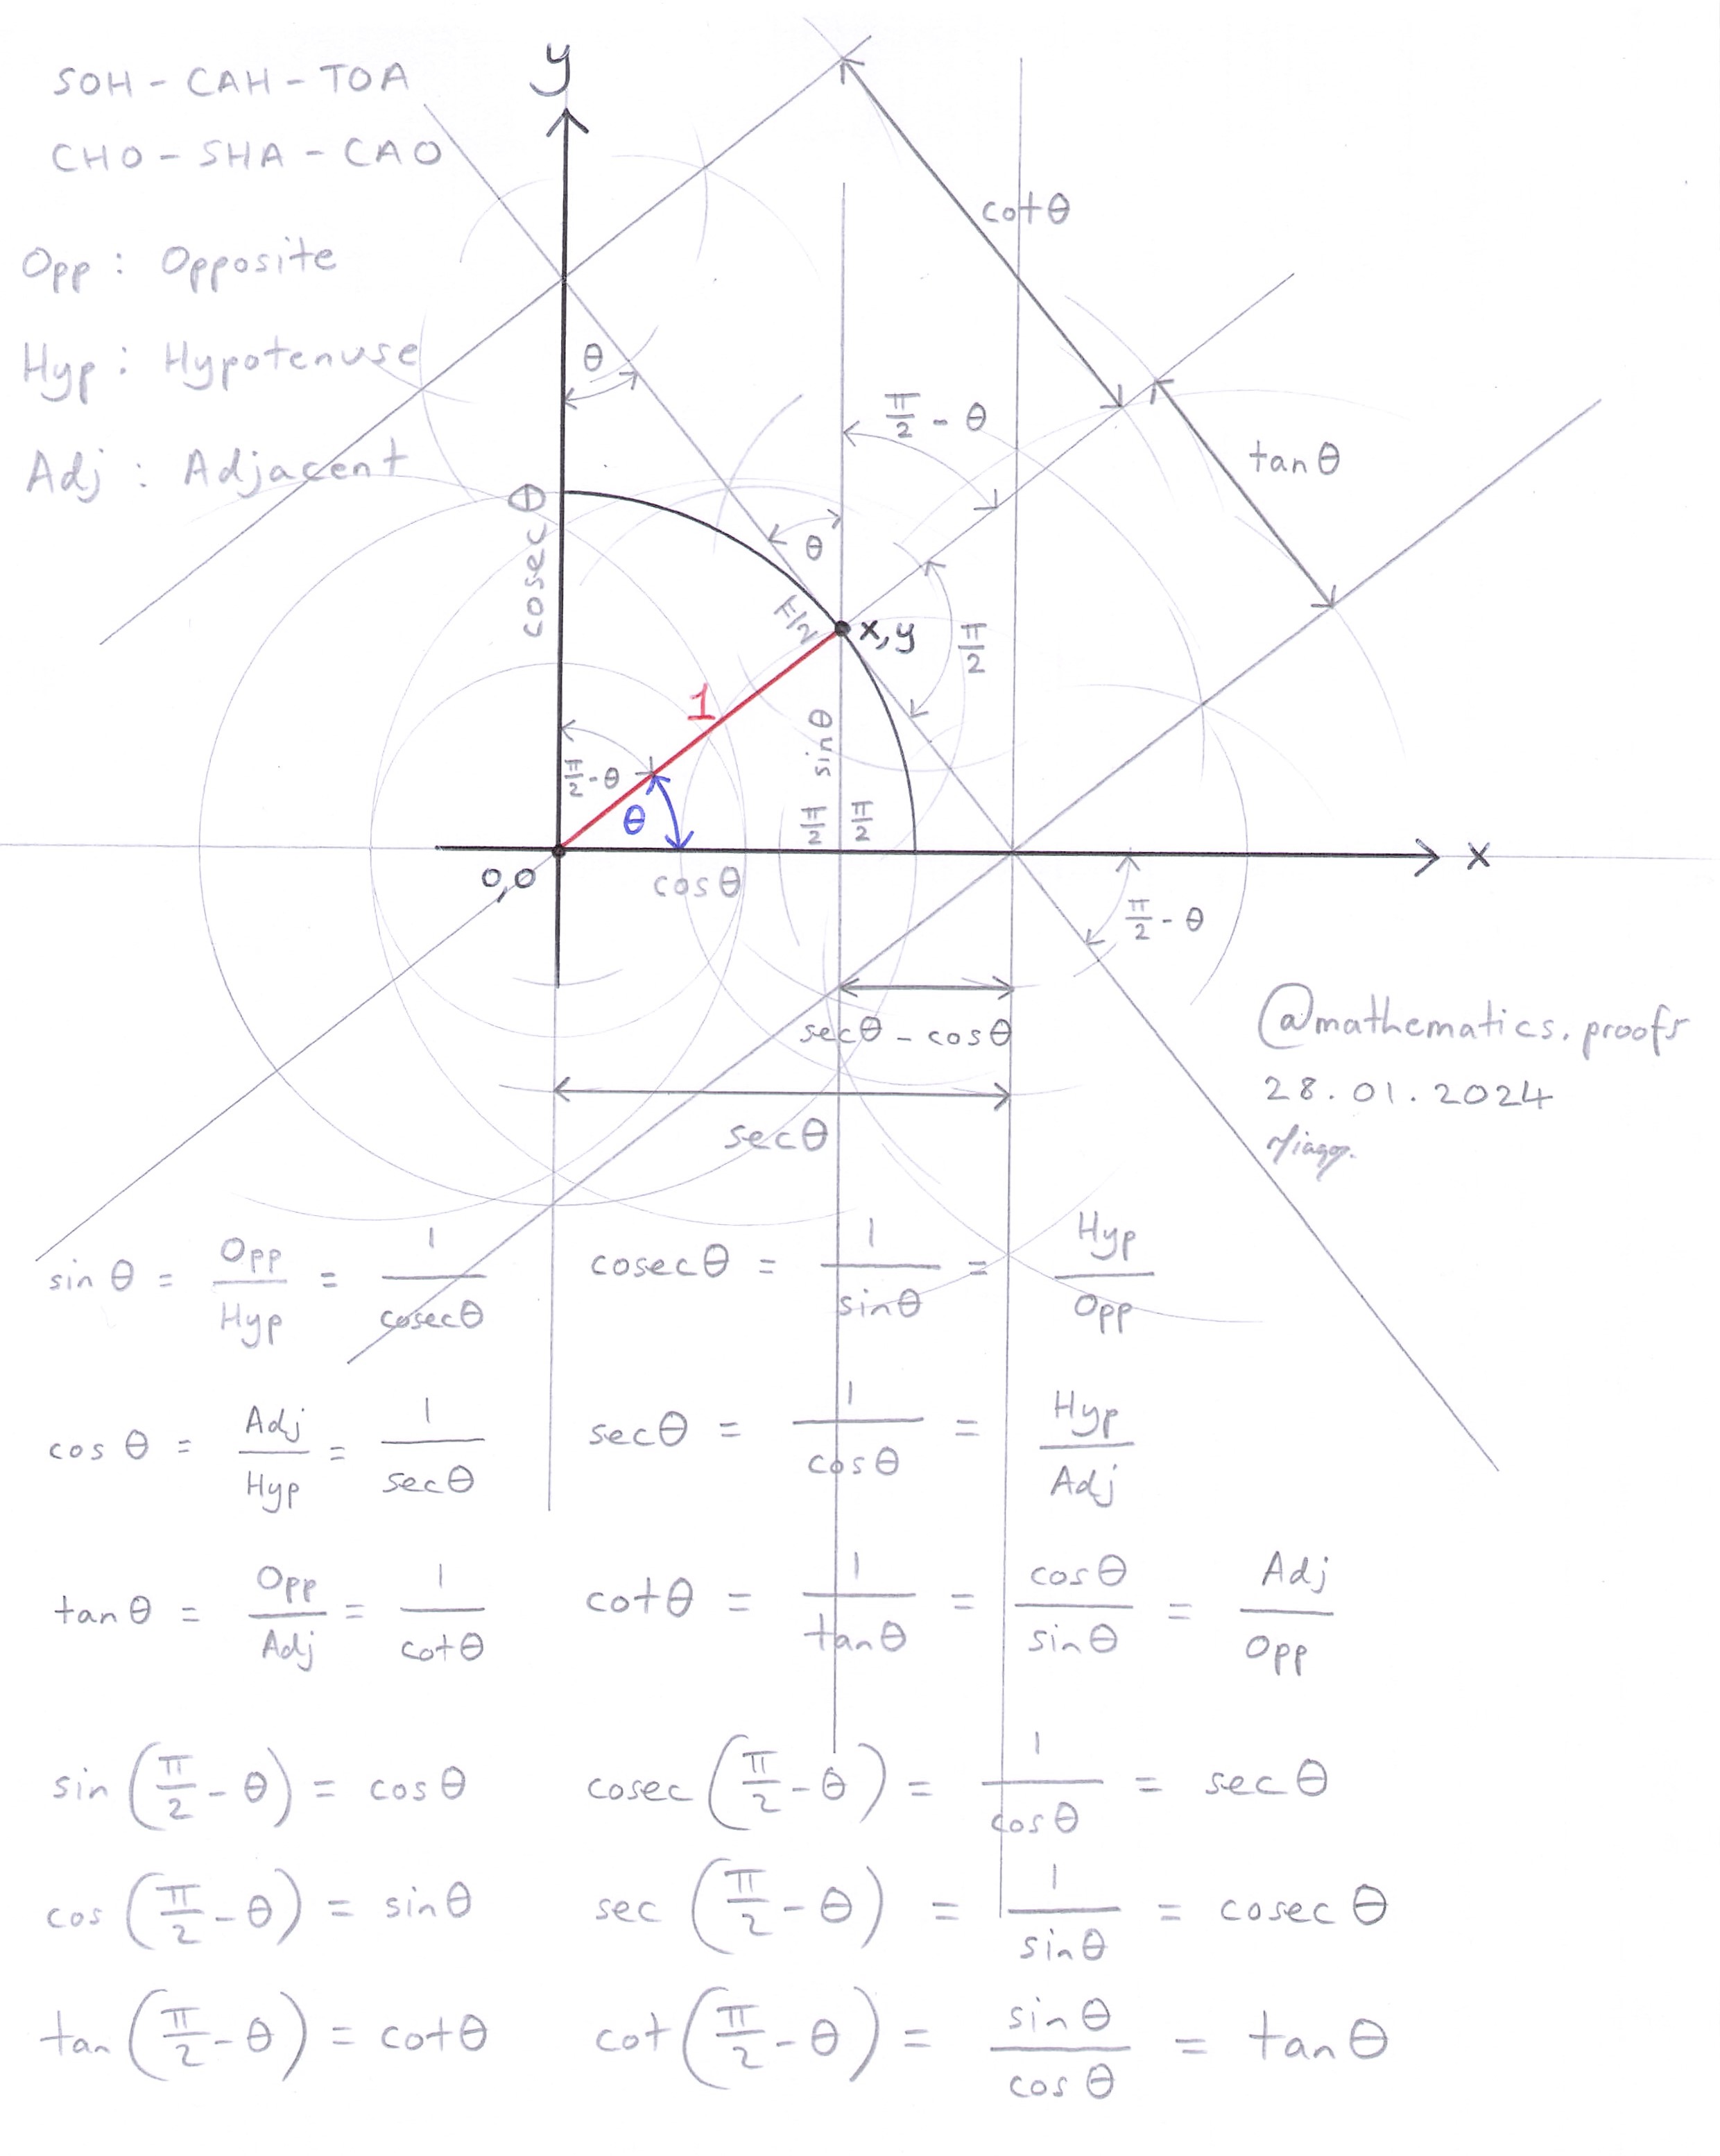 SOH - CAH - TOA
CHO - SHA - CAO
Opp : Opposite
Hyp : Hypotenuse
Adj : Adjacent
y
cot θ
θ
π/2 - θ
tan θ
cosec θ
θ
π/2
x,y
π/2
1
sin θ
π/2 - θ
θ
π/2
π/2
x
0,0
cos θ
π/2 - θ
sec θ - cos θ
sec θ
@mathematics.proofs
28.01.2024
sin θ = Opp/Hyp = 1/cosec θ
cosec θ = 1/sin θ = Hyp/Opp
cos θ = Adj/Hyp = 1/sec θ
sec θ = 1/cos θ = Hyp/Adj
tan θ = Opp/Adj = 1/cot θ
cot θ = 1/tan θ = cos θ/sin θ = Adj/Opp
sin (π/2 - θ) = cos θ
cosec (π/2 - θ) = 1/cos θ = sec θ
cos (π/2 - θ) = sin θ
sec (π/2 - θ) = 1/sin θ = cosec θ
tan (π/2 - θ) = cot θ
cot (π/2 - θ) = sin θ/cos θ = tan θ